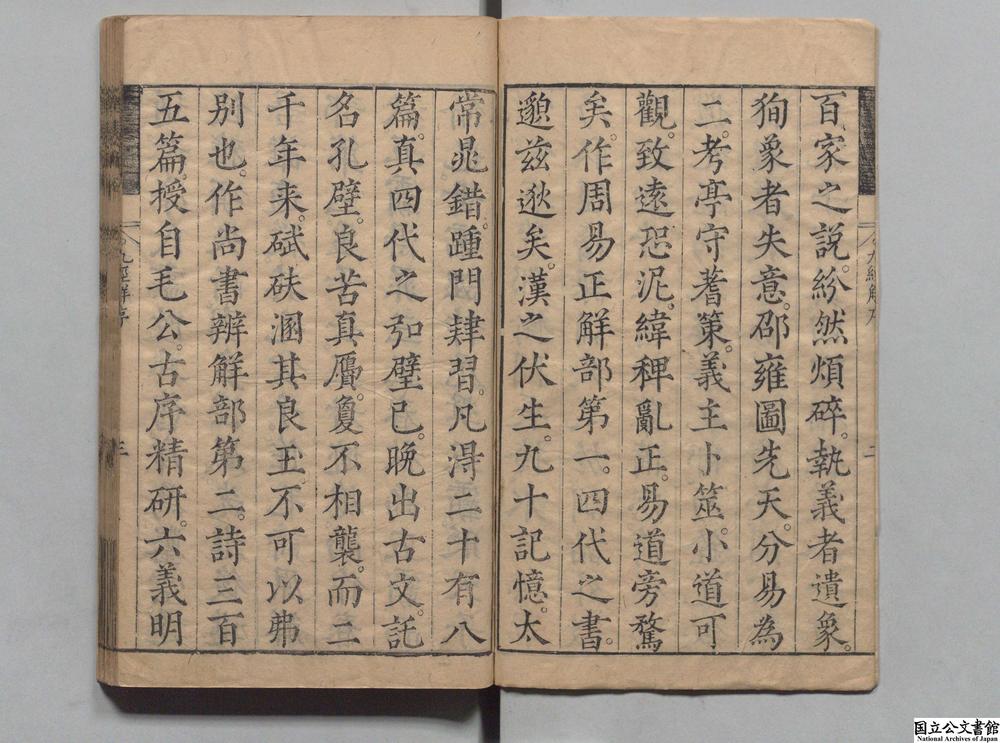 百家之說。紛然煩碎。執義者遺象。
狥象者失意。邵雍圖先天。分易為
二。考亭守蓍策。義主卜筮。小道可
觀。致遠恐泥。緯稗亂正。易道旁騖
矣。作周易正解部第一。四代之書。
邈兹逖矣。漢之伏生。九十記憶。太
常晁錯。踵門肄習。凡淂二十有八
篇。真四代之弘璧已。晚出古文。託
名孔壁。良苦真贋。夐不相襲。而二
千年来。碔砆溷其良玉。不可以弗
別也。作尚書辨解部第二。詩三百
五篇。授自毛公。古序精研。六義明
九經解序
三
国立公文書館
National Archives of Japan